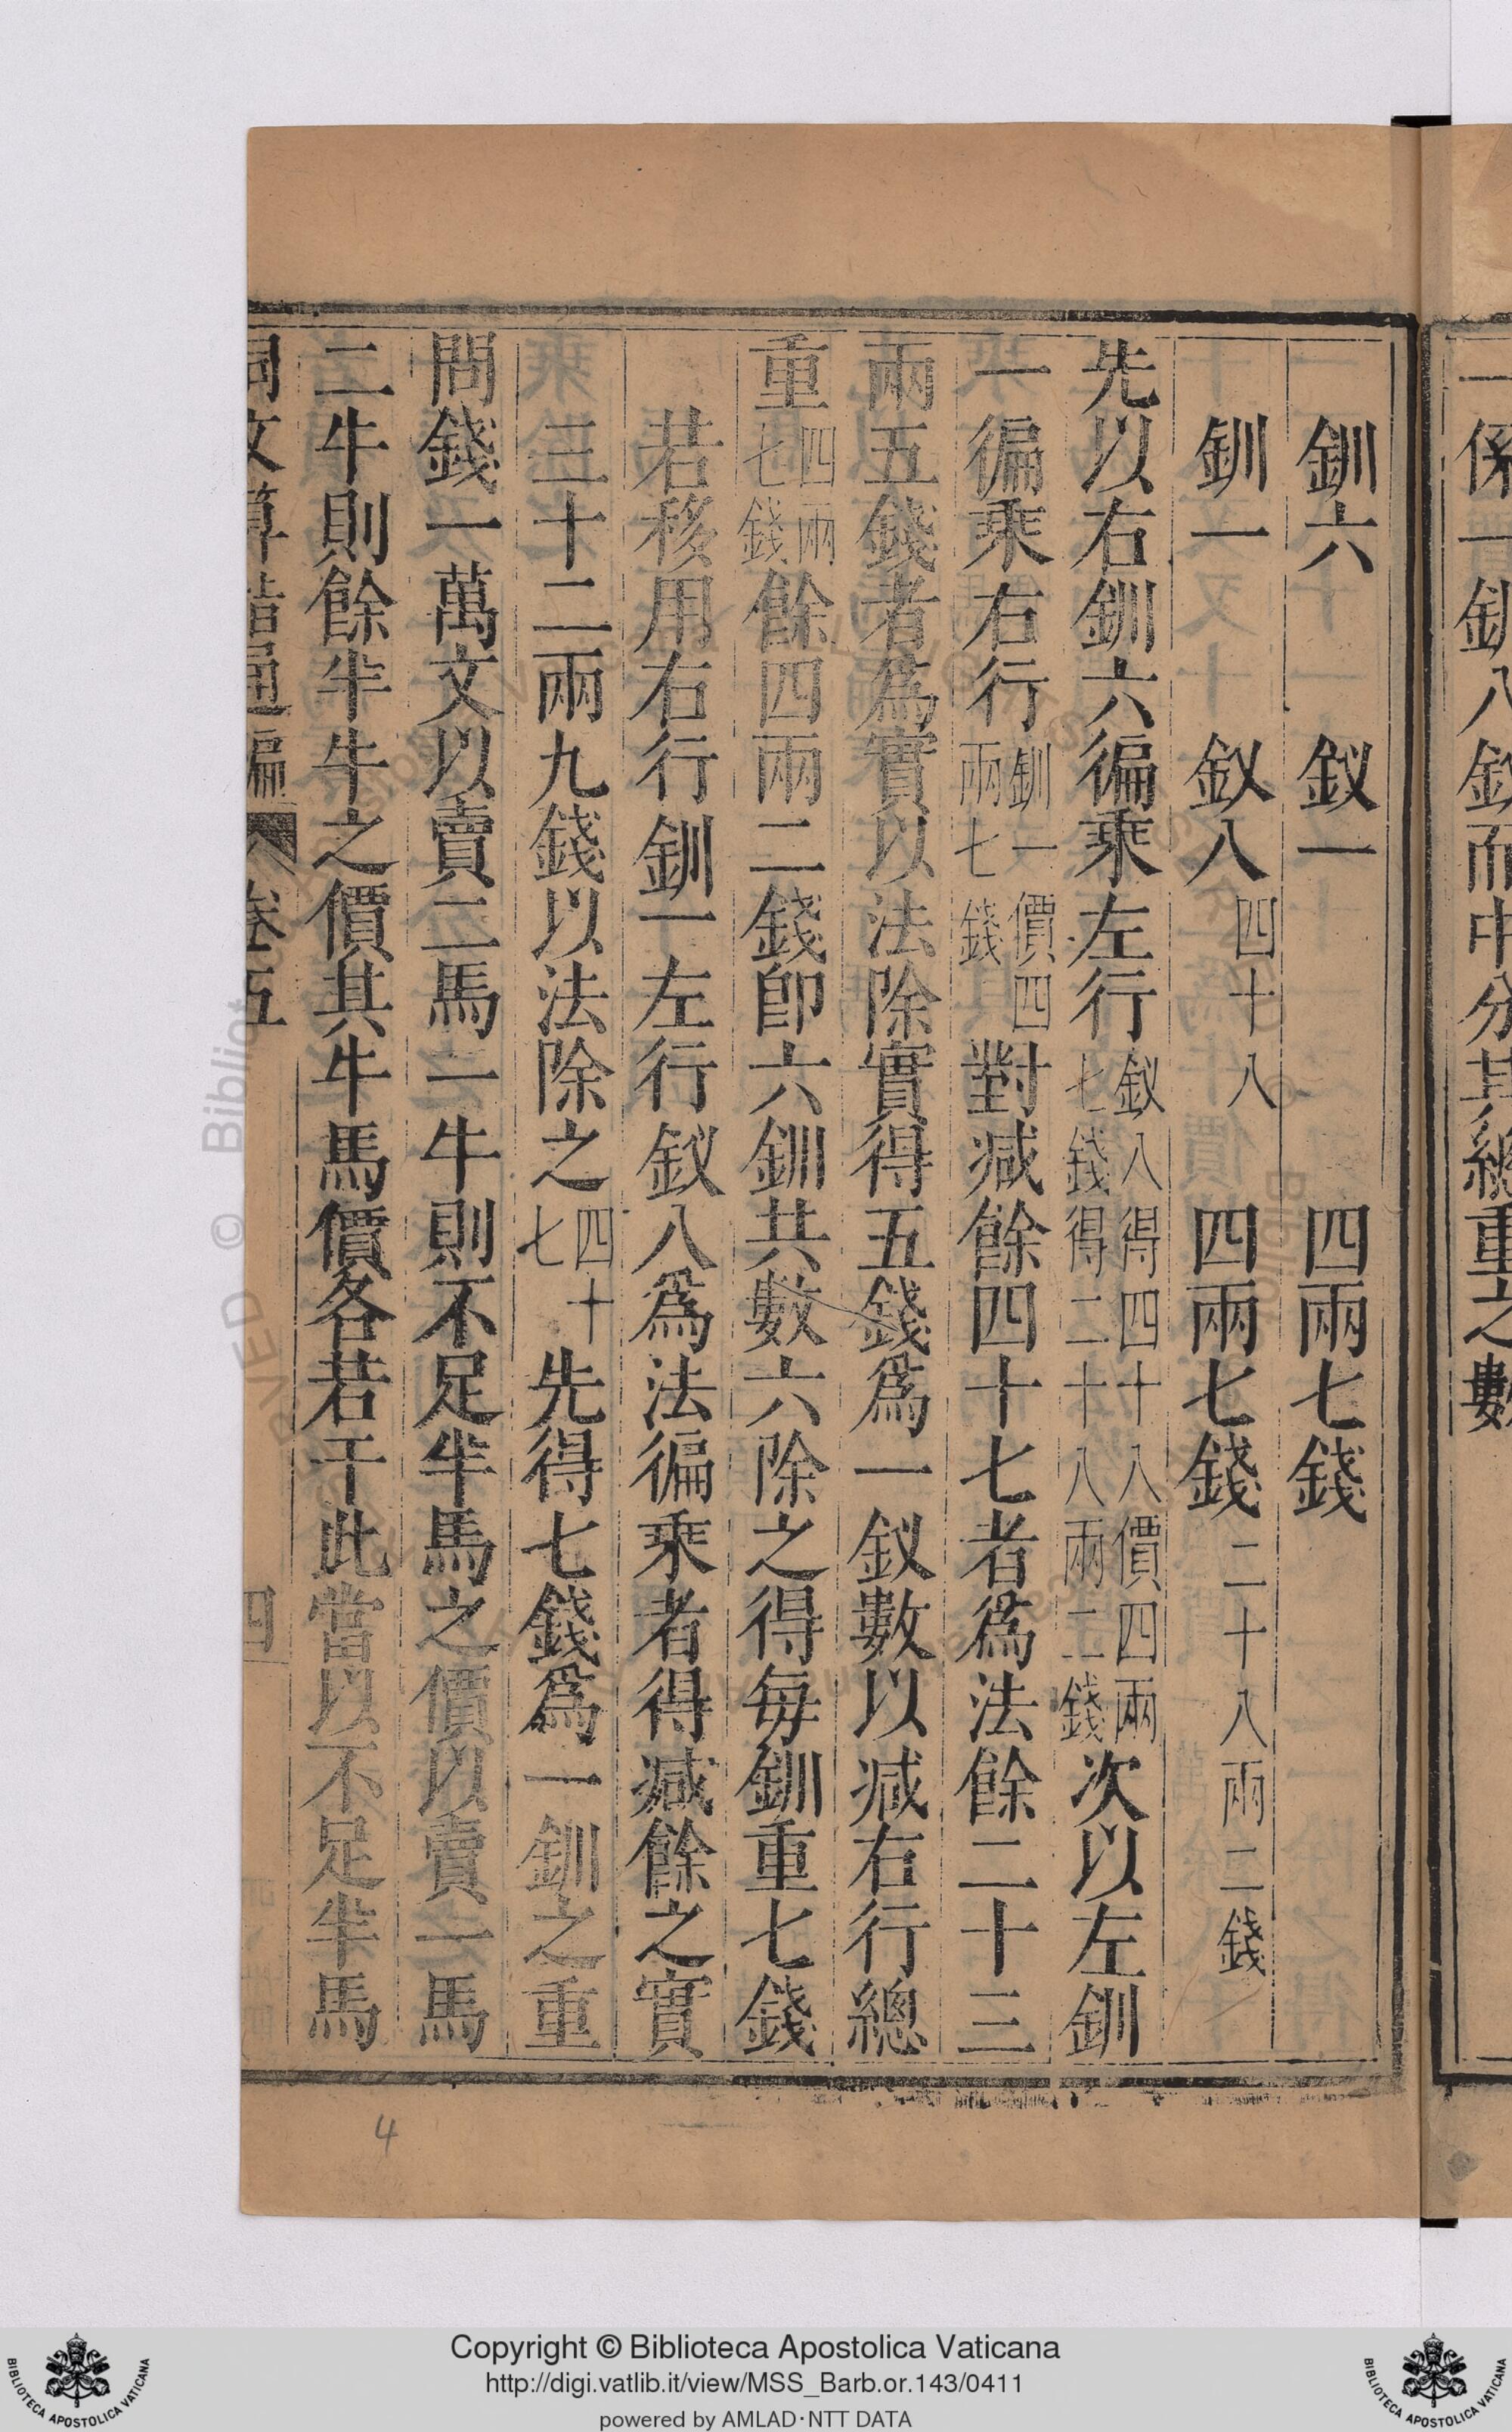 一係一釧八釵而中分其總重之數
釧六 釵一 四兩七錢
釧一 釵八 四十八 四兩七錢 二十八兩二錢
先以右釧六徧乘左行釵八得四十八價四兩七錢得二十八兩二錢次以左釧
一徧乘右行釧一價四兩七錢對减餘四十七者爲法餘二十三
兩五錢者爲實以法除實得五錢爲一釵數以减右行總
重四兩七錢餘四兩二錢卽六釧共數六除之得每釧重七錢
若移用右行釧一左行釵八爲法徧乘者得减餘之實
三十二兩九錢以法除之四十七先得七錢爲一釧之重
問錢一萬文以賣二馬一牛則不足半馬之價以賣一馬
二牛則餘半牛之價其牛馬價各若干此當以不足半馬
同文算指通編 卷五 四
4
Copyright © Biblioteca Apostolica Vaticana
http://digi.vatlib.it/view/MSS_Barb.or.143/0411
powered by AMLAD·NTT DATA
BIBLIOTECA APOSTOLICA VATICANA
BIBLIOTECA APOSTOLICA VATICANA